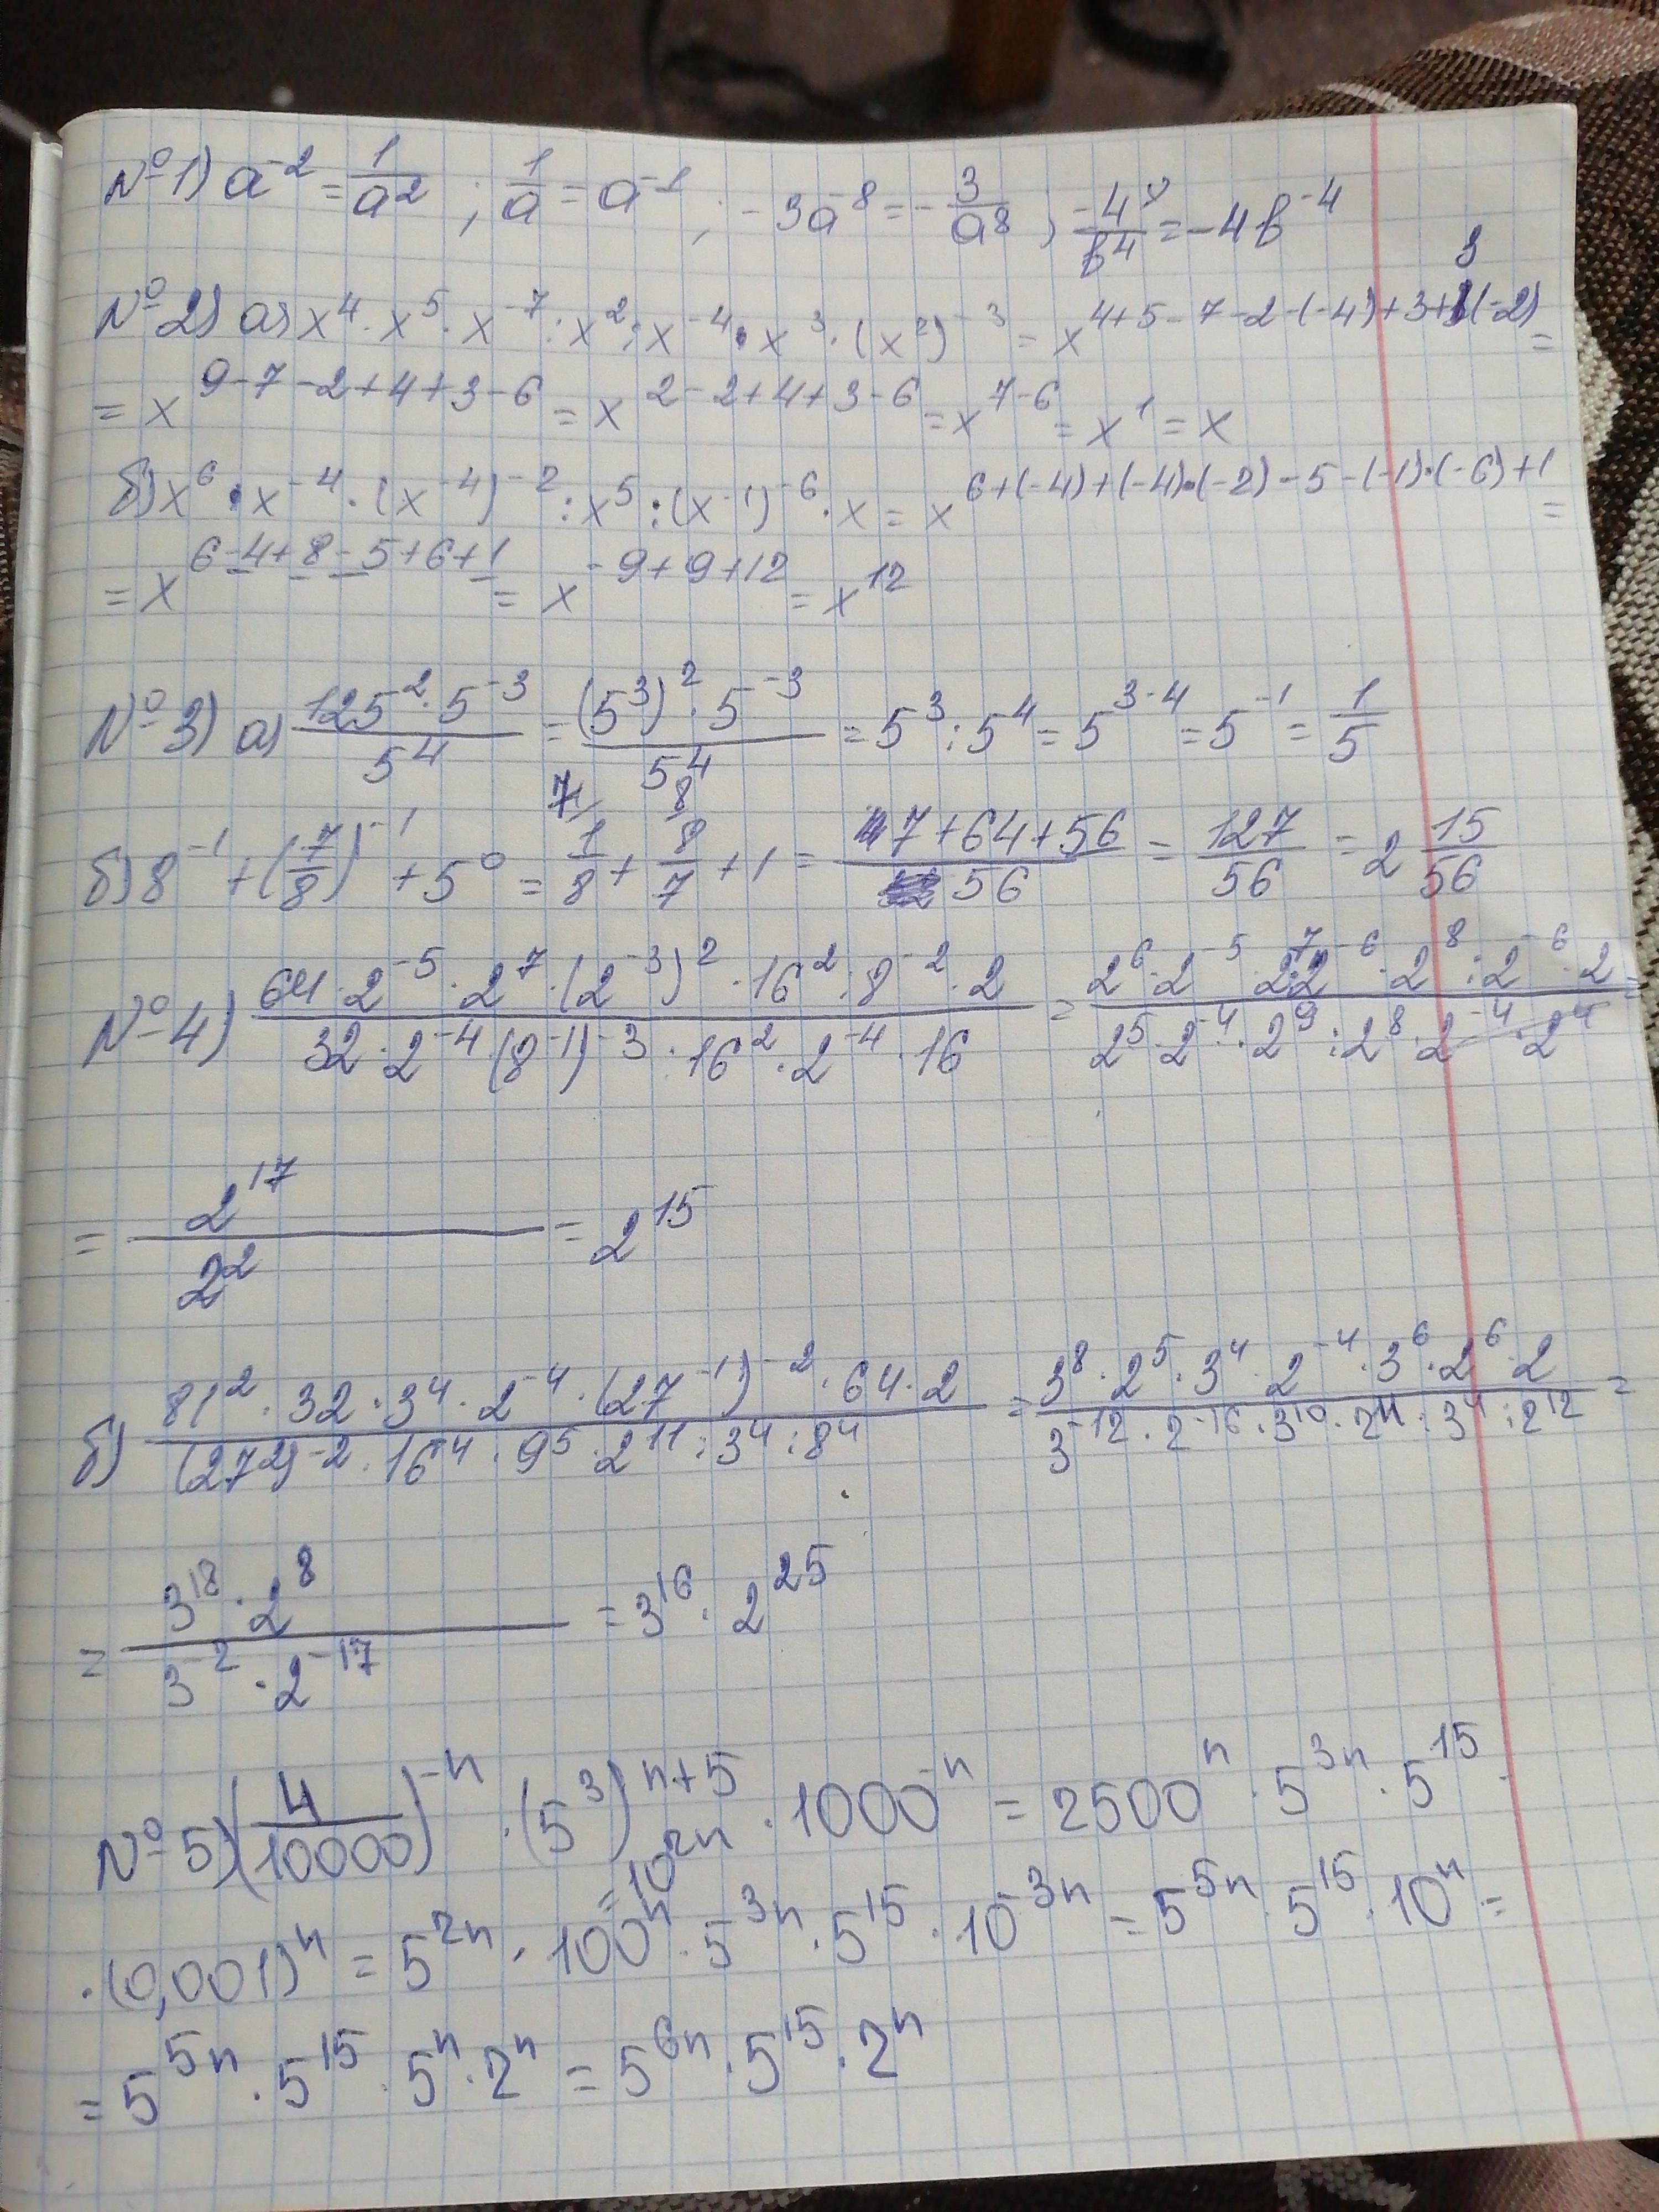 №1) a⁻² = 1/a² ; 1/a = a⁻¹ ; -3a⁻⁸ = -3/a⁸ ; -4/b⁴ = -4b⁻⁴
№2) а) x⁴ · x⁵ · x⁻⁷ : x² : x⁻⁴ · x³ · (x²)⁻³ = x^(4+5-7-2-(-4)+3+3(-2)) =
= x^(9-7-2+4+3-6) = x^(2-2+4+3-6) = x^(7-6) = x¹ = x
б) x⁶ · x⁻⁴ · (x⁻⁴)⁻² : x⁵ : (x⁻¹)⁻⁶ · x = x^(6+(-4)+(-4)·(-2)-5-(-1)·(-6)+1) =
= x^(6-4+8-5+6+1) = x^(-9+9+12) = x¹²
№3) а) (125² · 5⁻³)/5⁴ = ((5³)² · 5⁻³)/5⁴ = 5³ : 5⁴ = 5^(3-4) = 5⁻¹ = 1/5
б) 8⁻¹ + (7/8)⁻¹ + 5⁰ = 1/8 + 8/7 + 1 = (7+64+56)/56 = 127/56 = 2 15/56
№4) (64 · 2⁻⁵ · 2⁷ · (2⁻³)² · 16² : 8⁻² · 2)/(32 · 2⁻⁴ · (8⁻¹)⁻³ : 16² · 2⁻⁴ · 16) = (2⁶ · 2⁻⁵ · 2⁷ · 2⁻⁶ · 2⁸ : 2⁻⁶ · 2)/(2⁵ · 2⁻⁴ · 2⁹ : 2⁸ · 2⁻⁴ · 2⁴) =
= 2¹⁷/2² = 2¹⁵
б) (81² · 32 · 3⁴ · 2⁻⁴ · (27⁻¹)⁻² · 64 · 2)/((27²)⁻² · 16⁻⁴ · 9⁵ · 2¹¹ : 3⁴ : 8⁴) = (3⁸ · 2⁵ · 3⁴ · 2⁻⁴ · 3⁶ · 2⁶ · 2)/(3⁻¹² · 2⁻¹⁶ · 3¹⁰ · 2¹¹ : 3⁴ : 2¹²) =
= (3¹⁸ · 2⁸)/(3⁻² · 2⁻¹⁷) = 3¹⁶ · 2²⁵
№5) (4/10000)⁻ⁿ · (5³)ⁿ⁺⁵ · 1000⁻ⁿ = 2500ⁿ · 5³ⁿ · 5¹⁵ ·
=10²ⁿ
· (0,001)ⁿ = 5²ⁿ · 100ⁿ · 5³ⁿ · 5¹⁵ · 10⁻³ⁿ = 5⁵ⁿ · 5¹⁵ · 10ⁿ =
= 5⁵ⁿ · 5¹⁵ · 5ⁿ · 2ⁿ = 5⁶ⁿ · 5¹⁵ · 2ⁿ